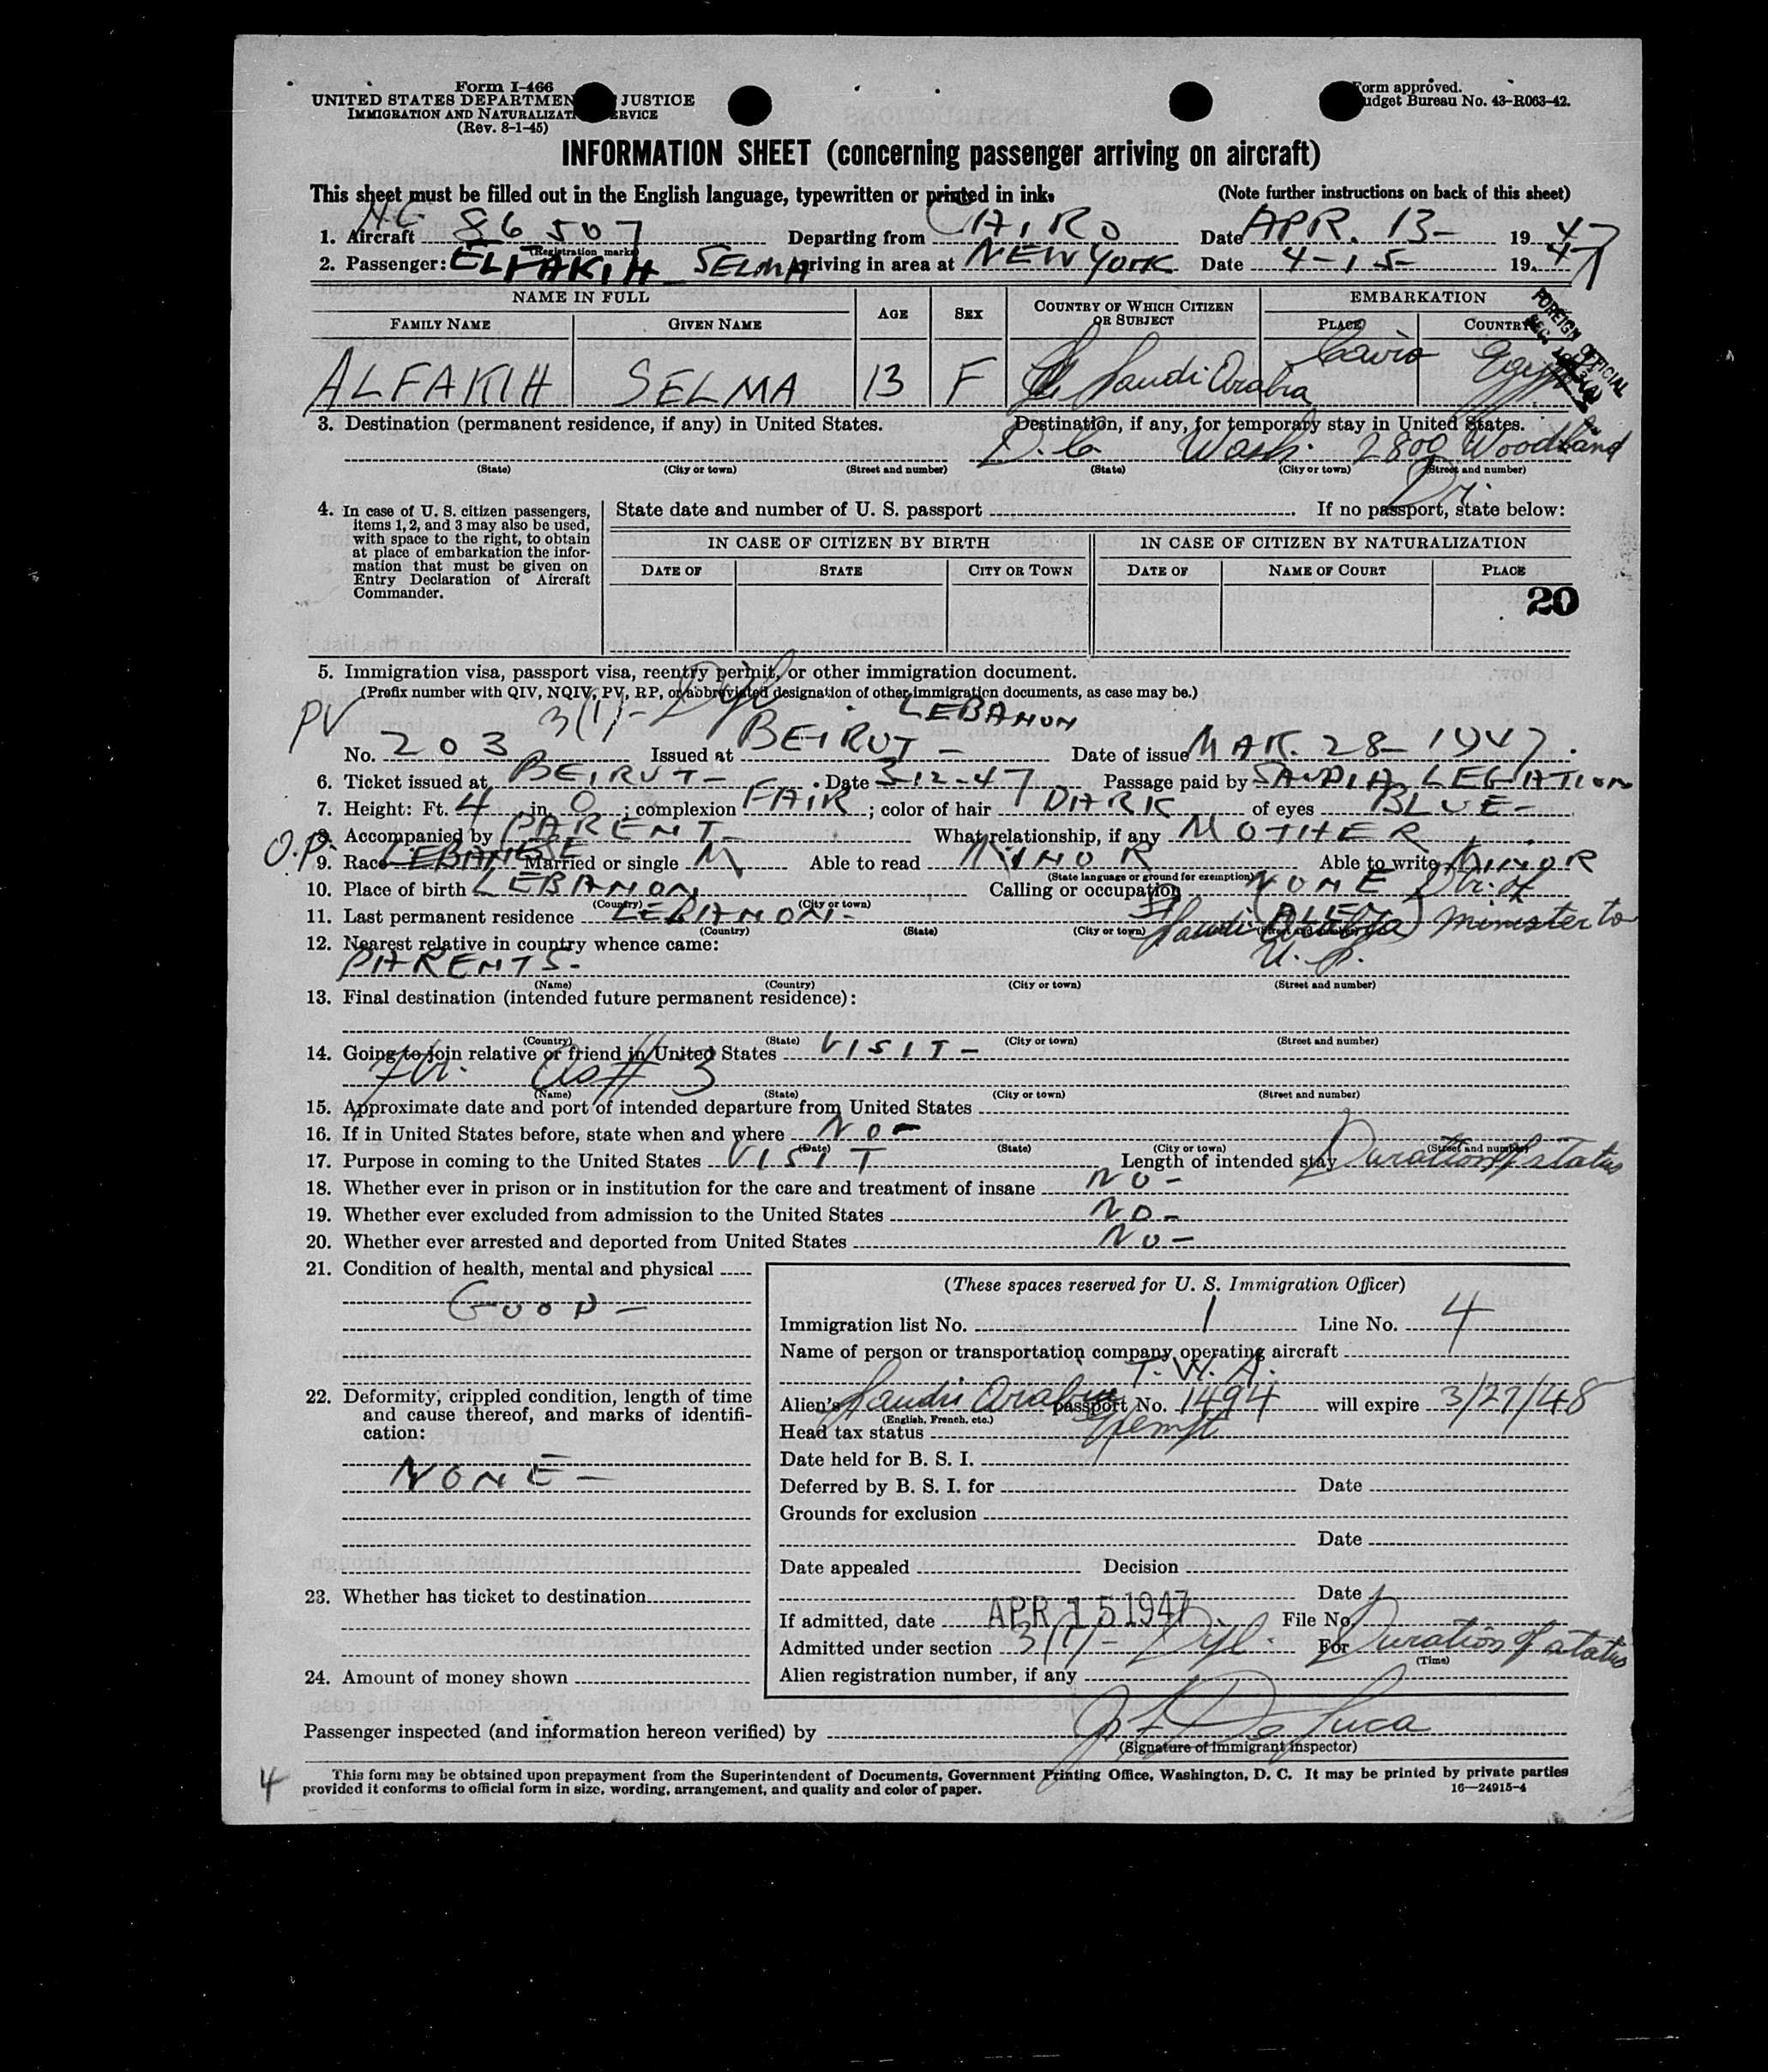 Form I-466
UNITED STATES DEPARTMEN JUSTICE
IMMIGRATION AND NATURALIZATI ERVICE
(Rev. 8-1-45)
orm approved.
udget Bureau No. 43-R063-42.
INFORMATION SHEET (concerning passenger arriving on aircraft)
This sheet must be filled out in the English language, typewritten or printed in ink.
(Note further instructions on back of this sheet)
1. Aircraft N.C. 86507 Departing from CAIRO Date APR. 13- 1947
(Registration marks)
2. Passenger: ELFAKIH SELMA Arriving in area at NEW YORK Date 4-15- 1947
NAME IN FULL AGE SEX COUNTRY OF WHICH CITIZEN OR SUBJECT EMBARKATION
FAMILY NAME GIVEN NAME PLACE COUNTRY
FOREIGN OFFICIAL
ALFAKIH SELMA 13 F Saudi Arabia Cairo Egypt
3. Destination (permanent residence, if any) in United States. Destination, if any, for temporary stay in United States.
D.C. Wash. 2800 Woodland Dr.
(State) (City or town) (Street and number) (State) (City or town) (Street and number)
4. In case of U. S. citizen passengers,
items 1, 2, and 3 may also be used,
with space to the right, to obtain
at place of embarkation the infor-
mation that must be given on
Entry Declaration of Aircraft
Commander.
State date and number of U. S. passport If no passport, state below:
IN CASE OF CITIZEN BY BIRTH IN CASE OF CITIZEN BY NATURALIZATION
DATE OF STATE CITY OR TOWN DATE OF NAME OF COURT PLACE
20
5. Immigration visa, passport visa, reentry permit, or other immigration document.
(Prefix number with QIV, NQIV, PV, RP, or abbreviated designation of other immigration documents, as case may be.)
PV 3(1)- Dpl LEBANON
No. 203 Issued at BEIRUT - Date of issue MAR. 28- 1947.
6. Ticket issued at BEIRUT- Date 3-12-47 Passage paid by SAUDIA LEGATION
7. Height: Ft. 4 in. 0; complexion FAIR; color of hair DARK of eyes BLUE-
8. Accompanied by PARENT- What relationship, if any MOTHER
O.P.
9. Race LEBANESE Married or single M Able to read MINOR Able to write MINOR
(State language or ground for exemption)
10. Place of birth LEBANON Calling or occupation NONE
(Country) (City or town)
11. Last permanent residence LEBANON- (ALEY) Minister to
Saudi Arabia
(Country) (State) (City or town) (Street and number)
12. Nearest relative in country whence came:
PARENTS- U.S.
(Name) (Country) (City or town) (Street and number)
13. Final destination (intended future permanent residence):
(Country) (State) (City or town) (Street and number)
14. Going to join relative or friend in United States VISIT-
As # 3
(Name) (State) (City or town) (Street and number)
15. Approximate date and port of intended departure from United States
16. If in United States before, state when and where NO-
(Date) (State) (City or town) (Street and number)
17. Purpose in coming to the United States VISIT Length of intended stay Duration of status
18. Whether ever in prison or in institution for the care and treatment of insane NO-
19. Whether ever excluded from admission to the United States NO-
20. Whether ever arrested and deported from United States NO-
21. Condition of health, mental and physical
GOOD-
22. Deformity, crippled condition, length of time
and cause thereof, and marks of identifi-
cation:
NONE-
23. Whether has ticket to destination
24. Amount of money shown
(These spaces reserved for U. S. Immigration Officer)
Immigration list No. 1 Line No. 4
Name of person or transportation company operating aircraft
T.W.A.
Alien's Saudi Arabia passport No. 1494 will expire 3/27/48
(English, French, etc.)
Head tax status Exempt
Date held for B. S. I.
Deferred by B. S. I. for Date
Grounds for exclusion
Date
Date appealed Decision
Date
If admitted, date APR 15 1947 File No.
Admitted under section 3(1)- Dpl. For Duration of status
(Time)
Alien registration number, if any
Passenger inspected (and information hereon verified) by
(Signature of Immigrant Inspector)
4
This form may be obtained upon prepayment from the Superintendent of Documents, Government Printing Office, Washington, D. C. It may be printed by private parties
provided it conforms to official form in size, wording, arrangement, and quality and color of paper. 16—24915-4